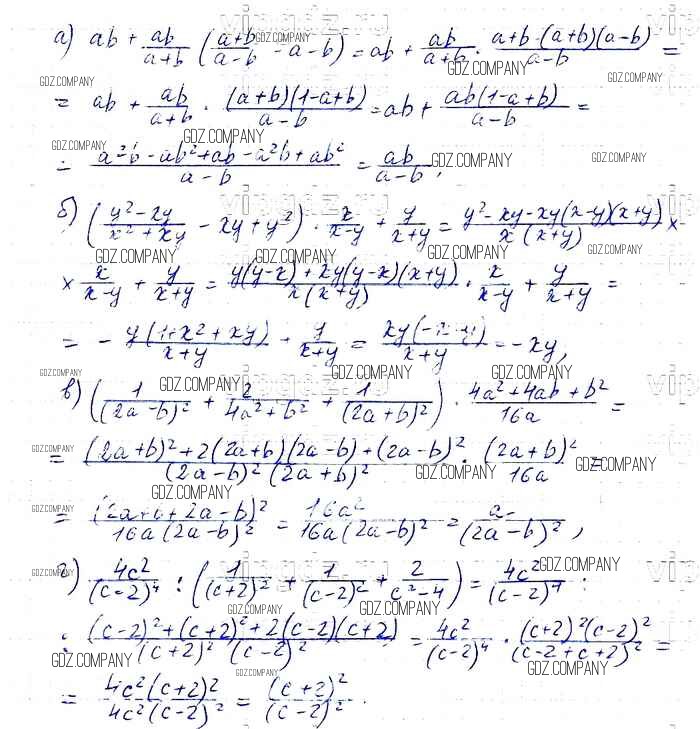 а) ab + ab/(a+b) ((a+b)/(a-b) - a - b) = ab + ab/(a+b) · (a+b-(a+b)(a-b))/(a-b) =
= ab + ab/(a+b) · ((a+b)(1-a+b))/(a-b) = ab + (ab(1-a+b))/(a-b) =
= (a²b - ab² + ab - a²b + ab²)/(a-b) = ab/(a-b),
б) ((y²-xy)/(x²+xy) - xy + y²) · x/(x-y) + y/(x+y) = (y²-xy-xy(x-y)(x+y))/(x(x+y)) ×
× x/(x-y) + y/(x+y) = (y(y-x)+xy(y-x)(x+y))/(x(x+y)) · x/(x-y) + y/(x+y) =
= - (y(1+x²+xy))/(x+y) + y/(x+y) = /(x+y) = -xy,
в) (1/(2a-b)² + 2/(4a²+b²) + 1/(2a+b)²) · (4a²+4ab+b²)/16a =
= ((2a+b)²+2(2a+b)(2a-b)+(2a-b)²)/((2a-b)²(2a+b)²) · (2a+b)²/16a =
= (2a+b+2a-b)²/(16a(2a-b)²) = 16a²/(16a(2a-b)²) = a/(2a-b)²,
г) 4c²/(c-2)⁴ : (1/(c+2)² + 1/(c-2)² + 2/(c²-4)) = 4c²/(c-2)⁴ :
: ((c-2)²+(c+2)²+2(c-2)(c+2))/((c+2)²(c-2)²) = 4c²/(c-2)⁴ · ((c+2)²(c-2)²)/(c-2+c+2)² =
= (4c²(c+2)²)/(4c²(c-2)²) = (c+2)²/(c-2)².
GDZ.COMPANY
vipgdz.ru